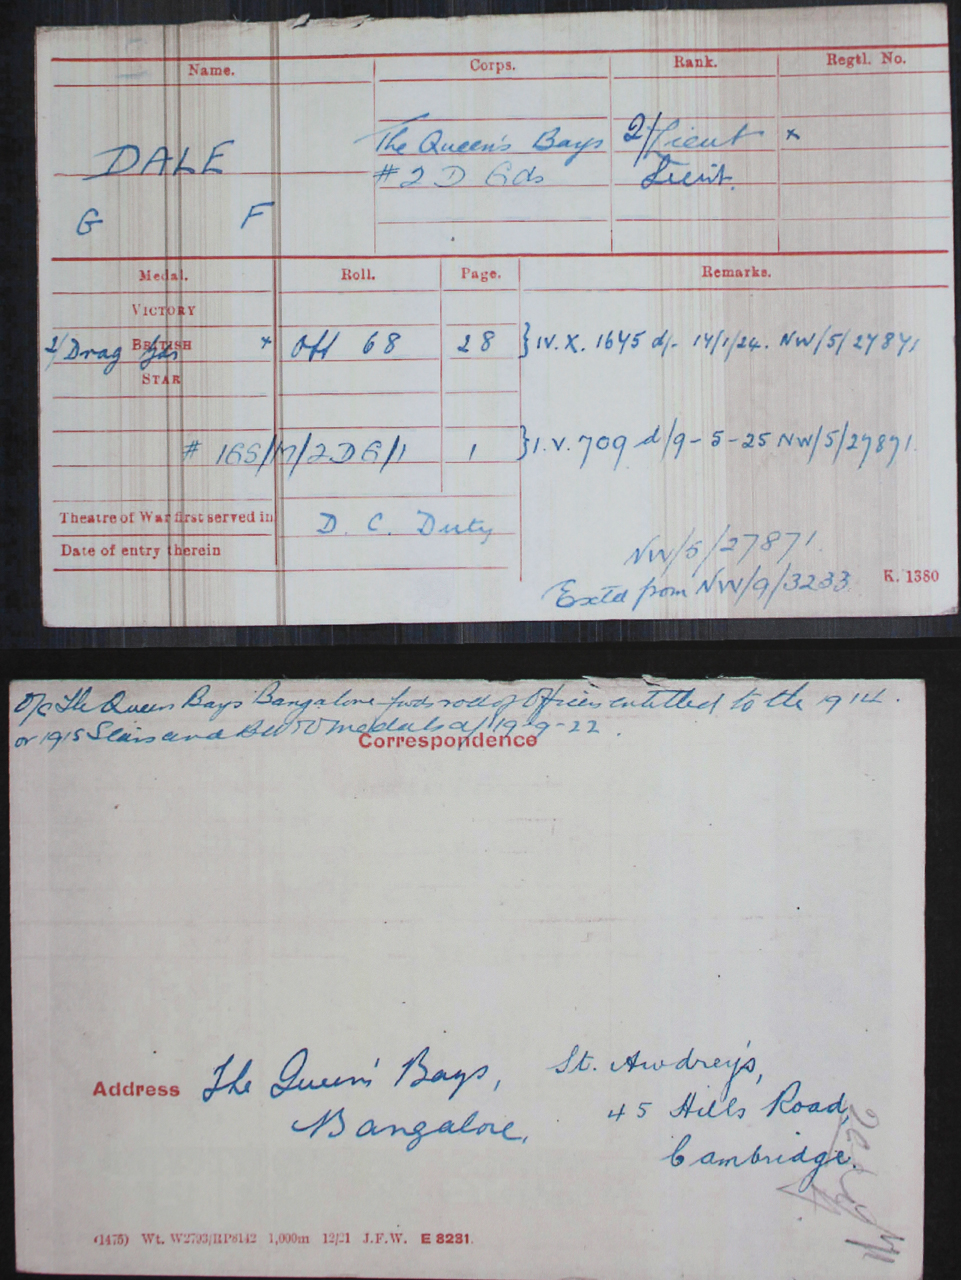 Name. Corps. Rank. Regtl. No.
The Queen's Bays 2/Lieut x
DALE # 2 D Gds Lieut.
G F
Medal. Roll. Page. Remarks.
VICTORY
BRITISH
2/Drag Gds x Off 68 28 }IV. X. 1645 d/- 14/1/24. NW/5/27871
STAR
# IGS/M/2DG/1 1 }I.V. 709 d/9-5-25 NW/5/27871.
Theatre of War first served in D. C. Duty
Date of entry therein
NW/5/27871.
Extd from NW/9/3233
K. 1380
O/c The Queens Bays Bangalore fwds roll of Officers entitled to the 1914.
or 1915 Stars and medals d/ 19-9-22.
Correspondence
Address The Queen's Bays,
Bangalore,
St. Awdrey's,
45 Hills Road,
Cambridge.
(1475) Wt. W2793/RP8142 1,000m 12/21 J.F.W. E 8231.